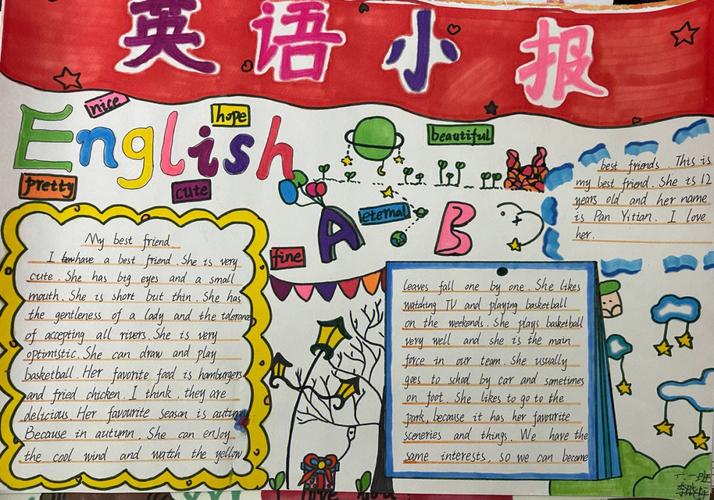 英语小报
English
nice
hope
beautiful
pretty
cute
eternal
fine
A
B
My best friend
I have a best friend. She is very
cute. She has big eyes and a small
mouth. She is short but thin. She has
the gentleness of a lady and the tolerance
of accepting all rivers. She is very
optimistic. She can draw and play
basketball. Her favorite food is hamburgers
and fried chicken. I think. they are
delicious Her favourite season is autumn.
Because in autumn. She can enjoy
the cool wind and watch the yellow
leaves fall one by one. She likes
watching TV and playing basketball
on the weekends. She plays basketball
very well and she is the main
force in our team. She usually
goes to school by car and sometimes
on foot. She likes to go to the
park, because it has her favourite
sceneries and things. We have the
same interests, so we can become
best friends. This is
my best friend. She is 12
years old and her name
is Pan Yitian. I love
her.
love you